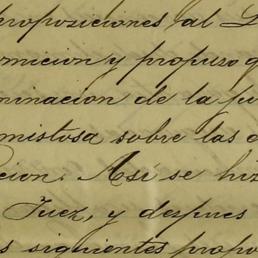 proposiciones al
rmicion y propuso q
minacion de la
mistosa sobre las
cion. Así se hiz
Juez, y despues
s siguientes propo